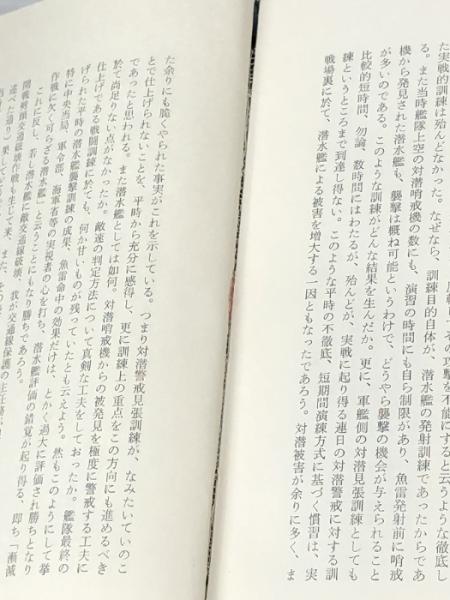 庄戟し、その攻撃を不能にすると云うような徹底し
た実戦的訓練は殆んどなかった。なぜなら、訓練目的自体が、潜水艦の発射訓練であったからであ
る。また当時艦隊上空の対潜哨戒機の数にも、演習の時間にも自ら制限があり、魚雷発射前に哨戒
機から発見された潜水艦も、襲撃は概ね可能というわけで、どうやら襲撃の機会が与えられること
が多いのである。このような訓練がどんな結果を生んだか。更に、軍艦側の対潜見張訓練としても
比較的短時間、勿論、数時間にはわたるが、殆んどが、実戦に起り得る連日の対潜警戒に対する訓
練というところまで到達し得ない。このような平時の不徹底、短期間演練方式に基づく慣習は、実
戦場裏に於て、潜水艦による被害を増大する一因ともなったであろう。対潜被害が余りに多く、ま
た余りにも脆くやられた事実がこれを示している。つまり対潜警戒見張訓練が、なみたいていのこ
とで仕上げられないことを、平時から充分に感得し、更に訓練上の重点をこの方向にも進めるべき
であったと思われる。また潜水艦としては如何。対潜哨戒機からの被発見を極度に警戒する工夫に
於て尚足りない点がなかったか。敵速の判定方法について真剣な工夫をしておったか。艦隊最終の
仕上げである戦闘訓練に於ても、何か甘いものが残っていたとも云えよう。然もこのようにして挙
げられた平時の潜水艦襲撃訓練の成果、魚雷命中の効果だけは、とかく過大に評価され勝ちとなり
特に中央当局、軍令部、海軍省等の実視者の心を打ち、潜水艦評価の錯覚が起り得る、即ち「漸減
作戦に欠く可らざる潜水艦」と云うことにもなり勝ちであろう。
これに反し、若し潜水艦に敵交通線破壊、我が交通線保護の主任務
開戦劈頭交通破壊作戦
述べた通り）果している